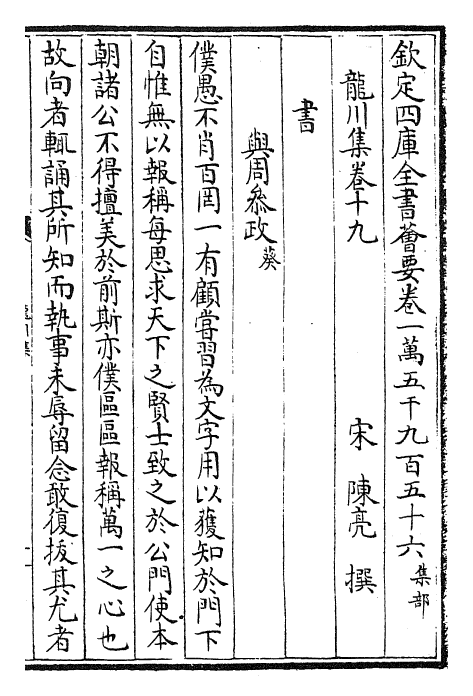 欽定四庫全書薈要卷一萬五千九百五十六 集部
龍川集卷十九
宋 陳亮 撰
書
與周叅政葵
僕愚不肖百罔一有顧嘗習為文字用以獲知於門下
自惟無以報稱每思求天下之賢士致之於公門使本
朝諸公不得擅美於前斯亦僕區區報稱萬一之心也
故向者輒誦其所知而執事未辱留念敢復拔其尤者